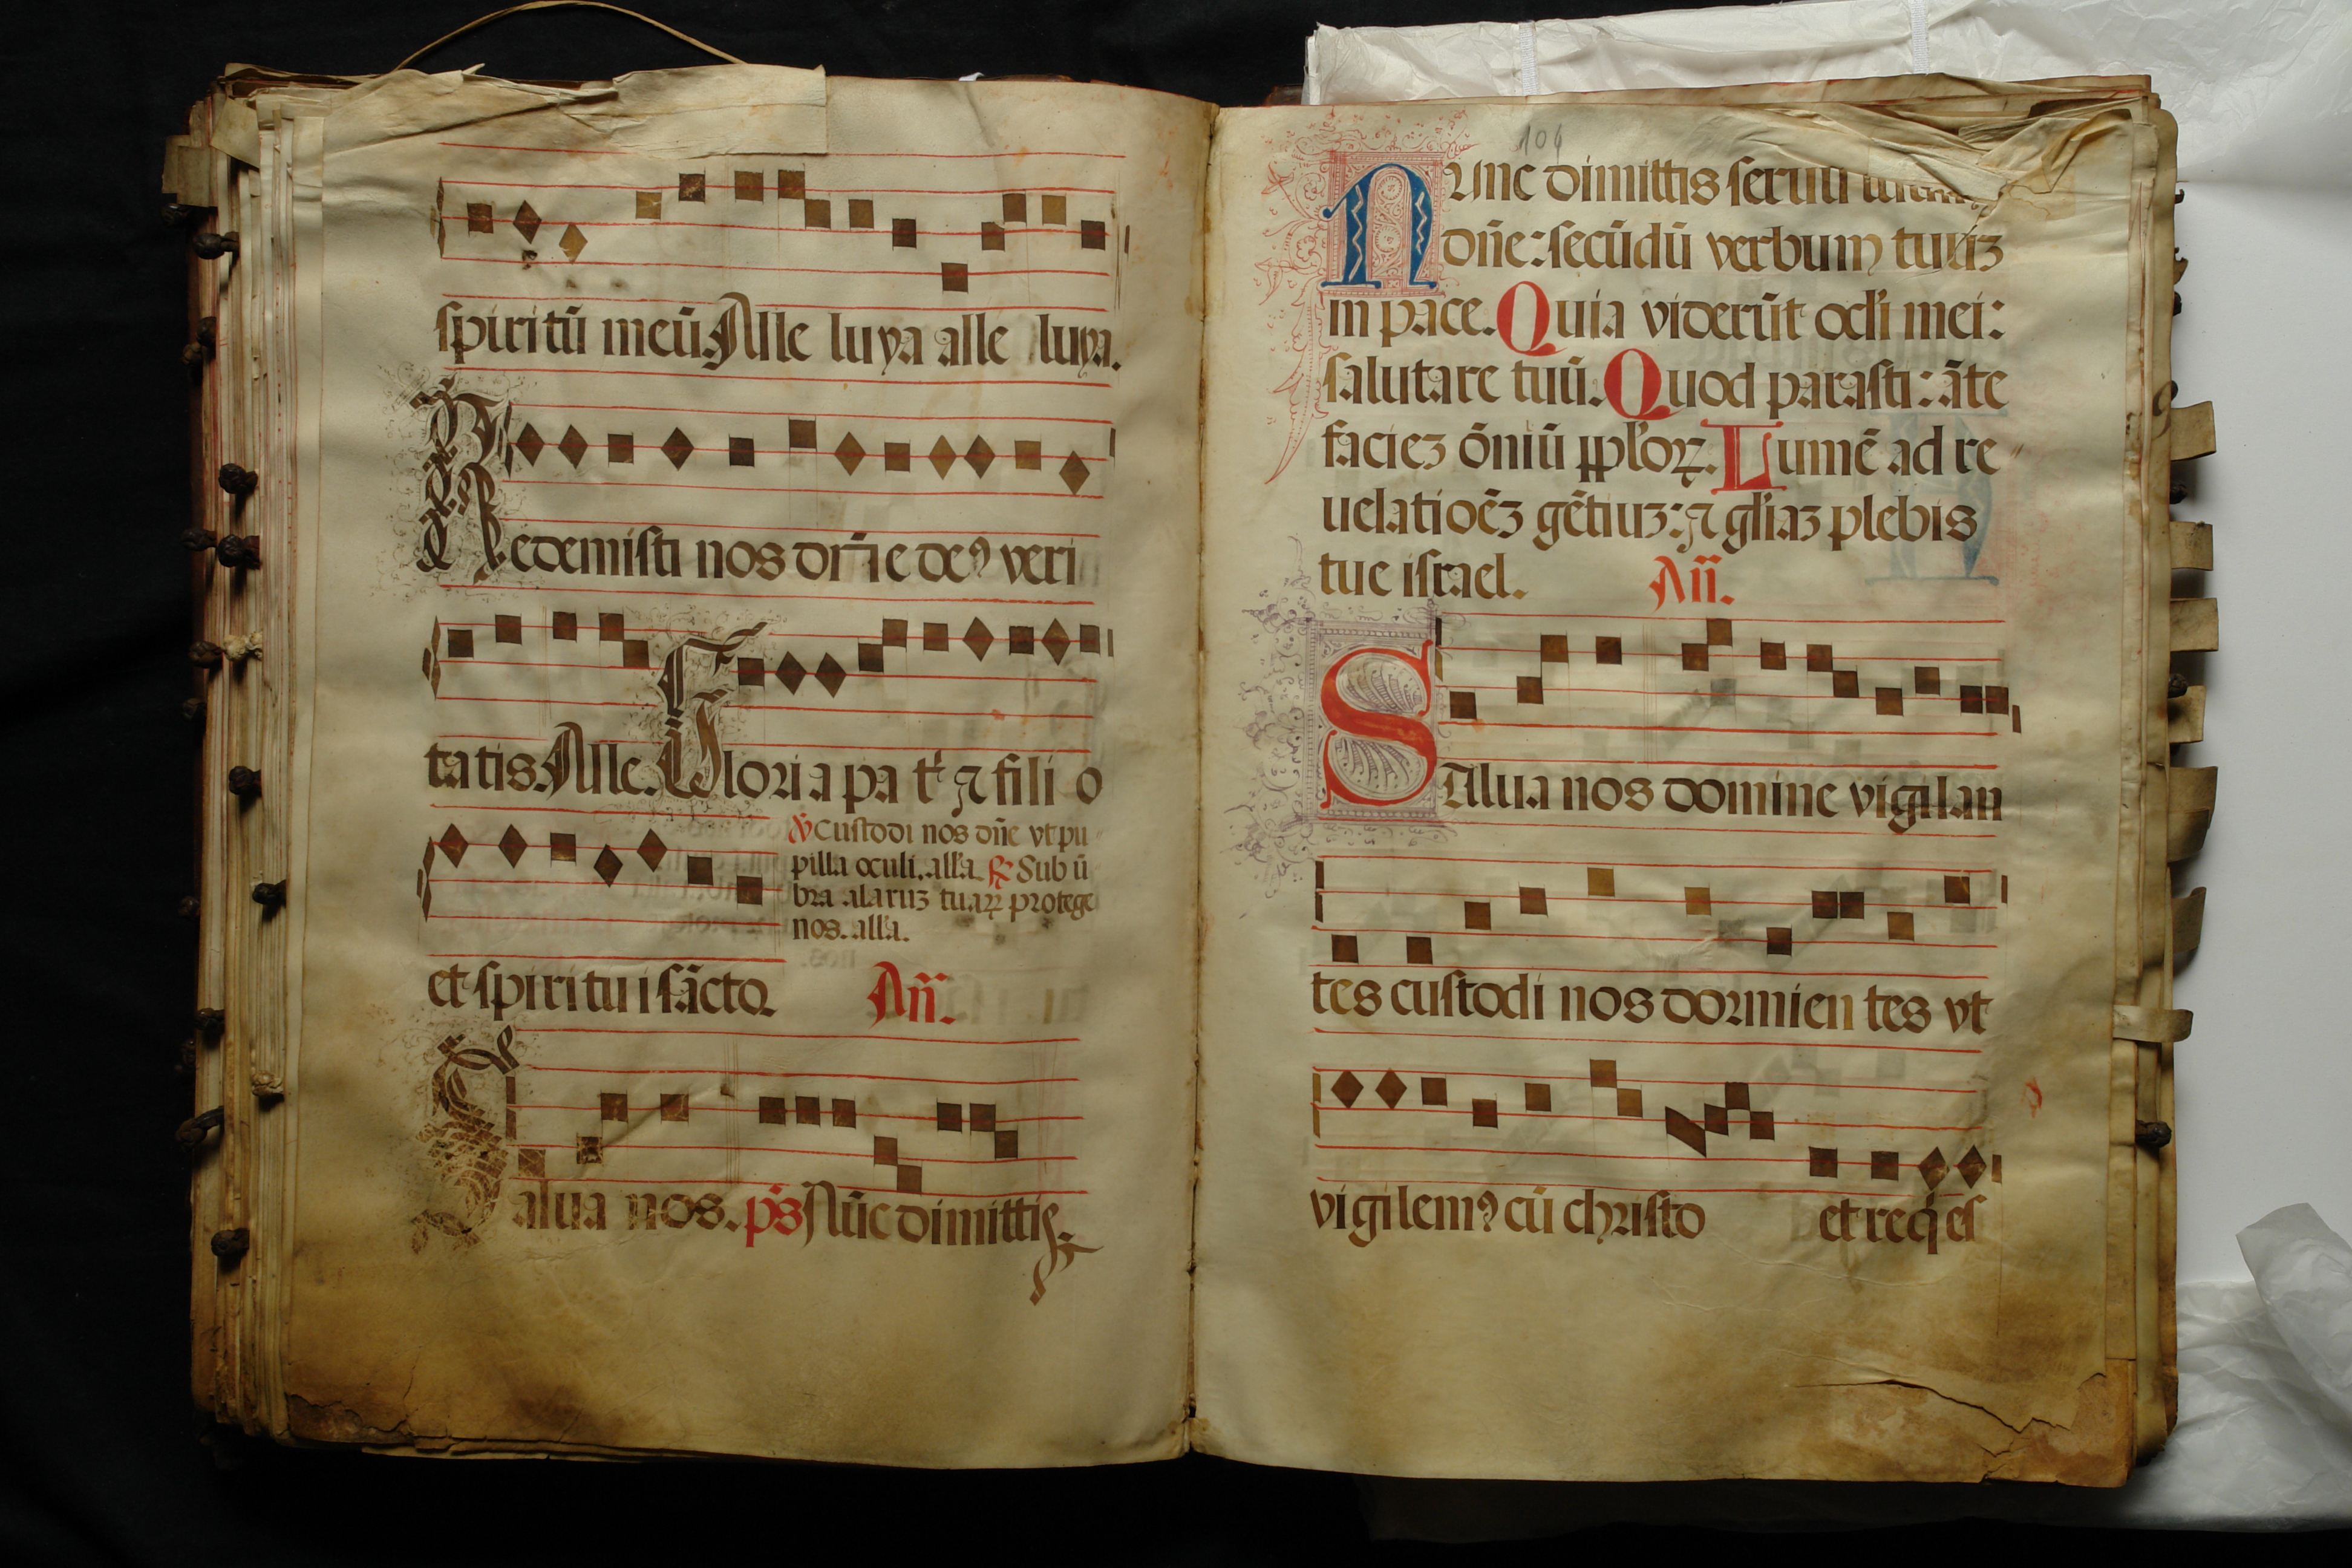 spiritū meū. Alle luya alle luya.
Redemisti nos dn̄e deꝰ veri
tatis. Alle. Gloria pa t' ⁊ fili o
℣ Custodi nos dn̄e vt pu
pilla oculi. all'a. ℟ Sub ū
bra alaruꝫ tuaꝝ protege
nos. all'a.
et spiritui sācto. Añ.
Salua nos. ps̄ Nūc dimittis.
104
Nunc dimittis seruū
dn̄e: secūdū verbum tuuꝫ
in pace. Quia viderūt ocl'i mei:
salutare tuū. Quod parasti: āte
facieꝫ ōniū ppl'oꝝ. Lumē ad re
uelatiōeꝫ gētiuꝫ: ⁊ gl'iaꝫ plebis
tue israel. Añ.
SAlua nos domine vigilan
tes custodi nos dormien tes vt
vigilemꝰ cū christo et req̇es